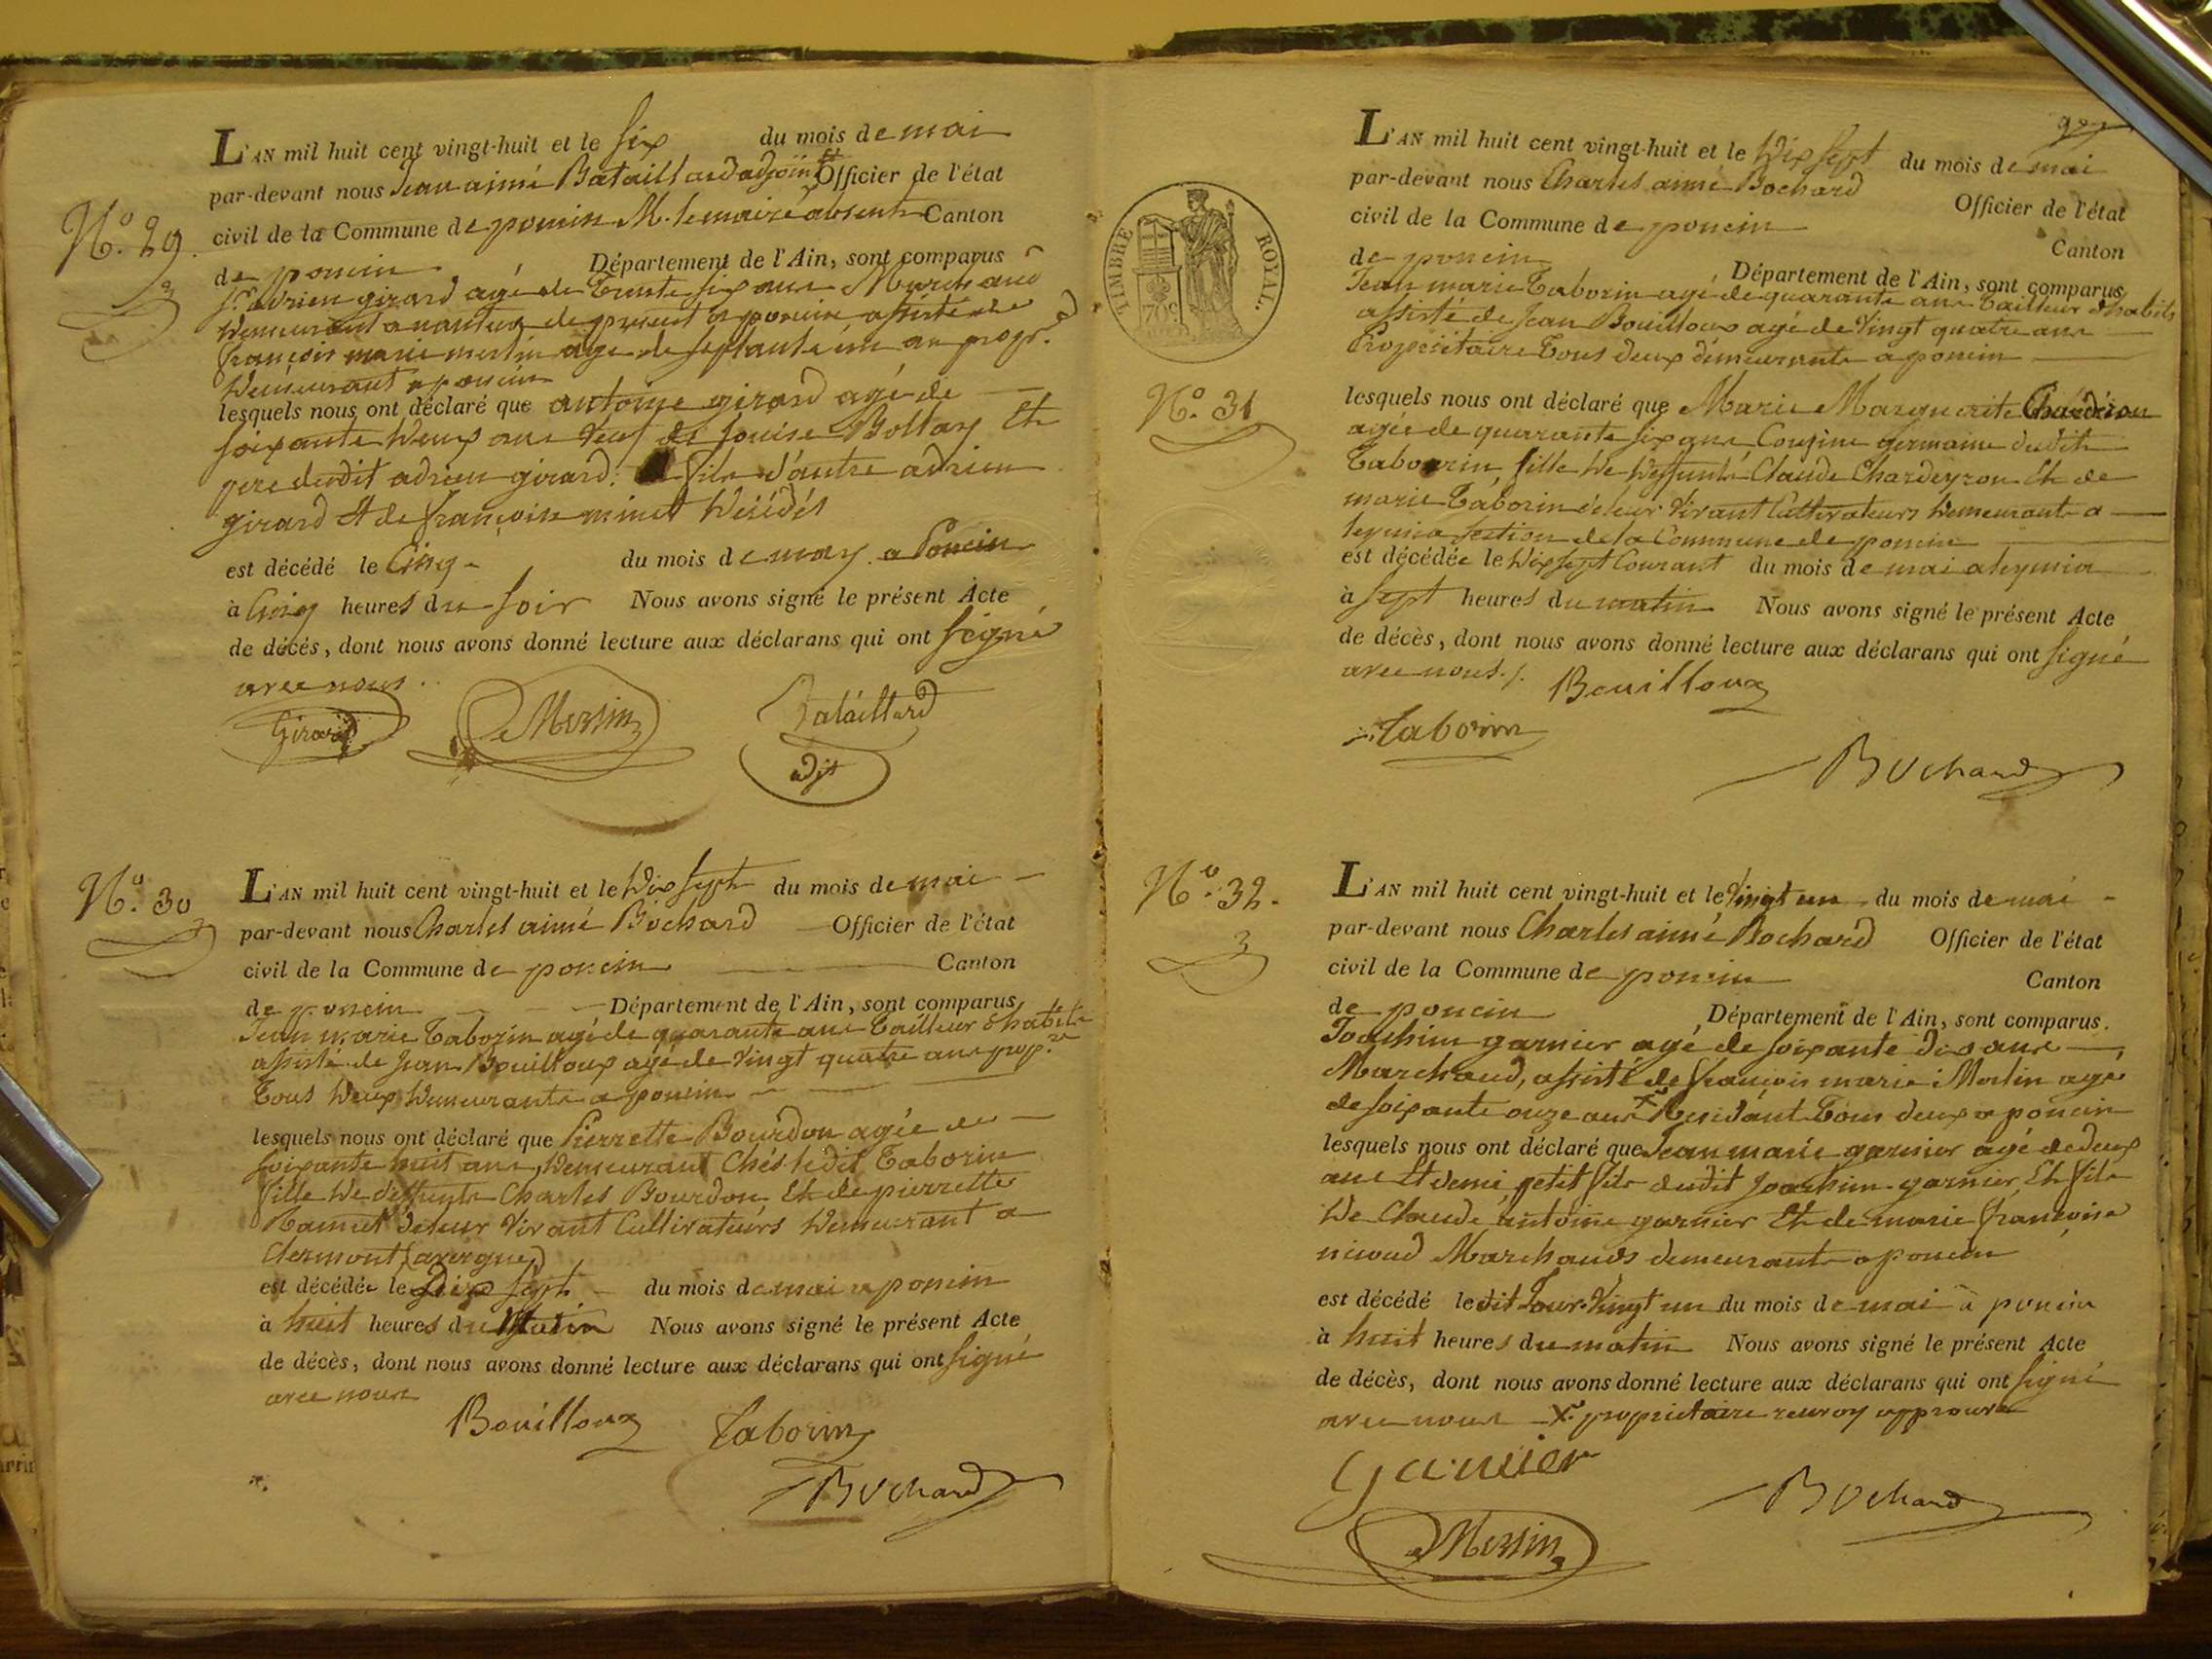 N.º 29.
L'AN mil huit cent vingt-huit et le six du mois de mai
par-devant nous Jean aimé Bataillard adjoint Officier de l'état
civil de la Commune de poncin M. le maire absent Canton
de poncin Département de l'Ain, sont comparus
Sr. adrien girard agé de trente six ans Marchand
demeurant a nantua de present a poncin assisté de
françois marie merlin agé de septante un an propr.
demeurant a poncin
lesquels nous ont déclaré que antoine girard agé de
soixante deux ans veuf de Louise Bollay Et
pere dudit adrien girard. fils d'autre adrien
girard et de françoise minet décédés
est décédé le Cinq du mois de may a Poncin
à Cinq heures du soir Nous avons signé le présent Acte
de décés, dont nous avons donné lecture aux déclarans qui ont signé
avec nous.
Girard Merlin Bataillard
adjt
N.º 30
L'AN mil huit cent vingt-huit et le dix sept du mois de mai
par-devant nous Charles aimé Bochard Officier de l'état
civil de la Commune de poncin Canton
de poncin Département de l'Ain, sont comparus
Jean marie Taborin agé de quarante ans Tailleur d'habits
assisté de Jean Bouilloux agé de vingt quatre ans prop.re
Tous deux demeurants a poncin
lesquels nous ont déclaré que Pierrette Bourdon agée de
soixante huit ans, demeurant chés ledit Taborin
fille de deffunts Charles Bourdon Et de pierrette
Ramet de leur vivant Cultivateurs demeurant a
Clermont (avergne)
est décédée le Dix sept du mois de mai a poncin
à huit heures du Matin Nous avons signé le présent Acte
de décès, dont nous avons donné lecture aux déclarans qui ont signé
avec nous
Bouilloux Taborin
Bochard
TIMBRE ROYAL.
N.º 31
L'AN mil huit cent vingt-huit et le dix sept du mois de mai
par-devant nous Charles aimé Bochard Officier de l'état
civil de la Commune de poncin Canton
de poncin Département de l'Ain, sont comparus
Jean marie Taborin agé de quarante ans Tailleur d'habits
assisté de Jean Bouilloux agé de vingt quatre ans
Propriétaire Tous deux demeurants a poncin
lesquels nous ont déclaré que Marie Marguerite
agée de quarante six ans Cousine germaine dudit
Taborin, fille de deffunts Claude Chardeyron Et de
marie Taborin de leur vivant Cultivateurs demeurants a
leymia section de la Commune de poncin
est décédée le dix sept Courant du mois de mai a leymia
à sept heures du matin Nous avons signé le présent Acte
de décès, dont nous avons donné lecture aux déclarans qui ont signé
avec nous./. Bouilloux
Taborin
Bochard
N.º 32.
L'AN mil huit cent vingt-huit et le vingt un du mois de mai
par-devant nous Charles aimé Bochard Officier de l'état
civil de la Commune de poncin Canton
de poncin Département de l'Ain, sont comparus.
Joachim garnier agé de soixante dix ans
Marchand, assisté de françois marie Merlin agé
de soixante onze ans X Residant Tous deux a poncin
lesquels nous ont déclaré que Jean marie garnier agé de deux
ans Et demi petit fils dudit Joachim garnier, Et fils
de Claude antoine garnier Et de marie françoise
nicoud Marchands demeurants a poncin
est décédé le dit Jour vingt un du mois de mai à poncin
à huit heures du matin Nous avons signé le présent Acte
de décès, dont nous avons donné lecture aux déclarans qui ont signé
avec nous X. propriétaire renvoy approuvé
Garnier
Bochard
Merlin